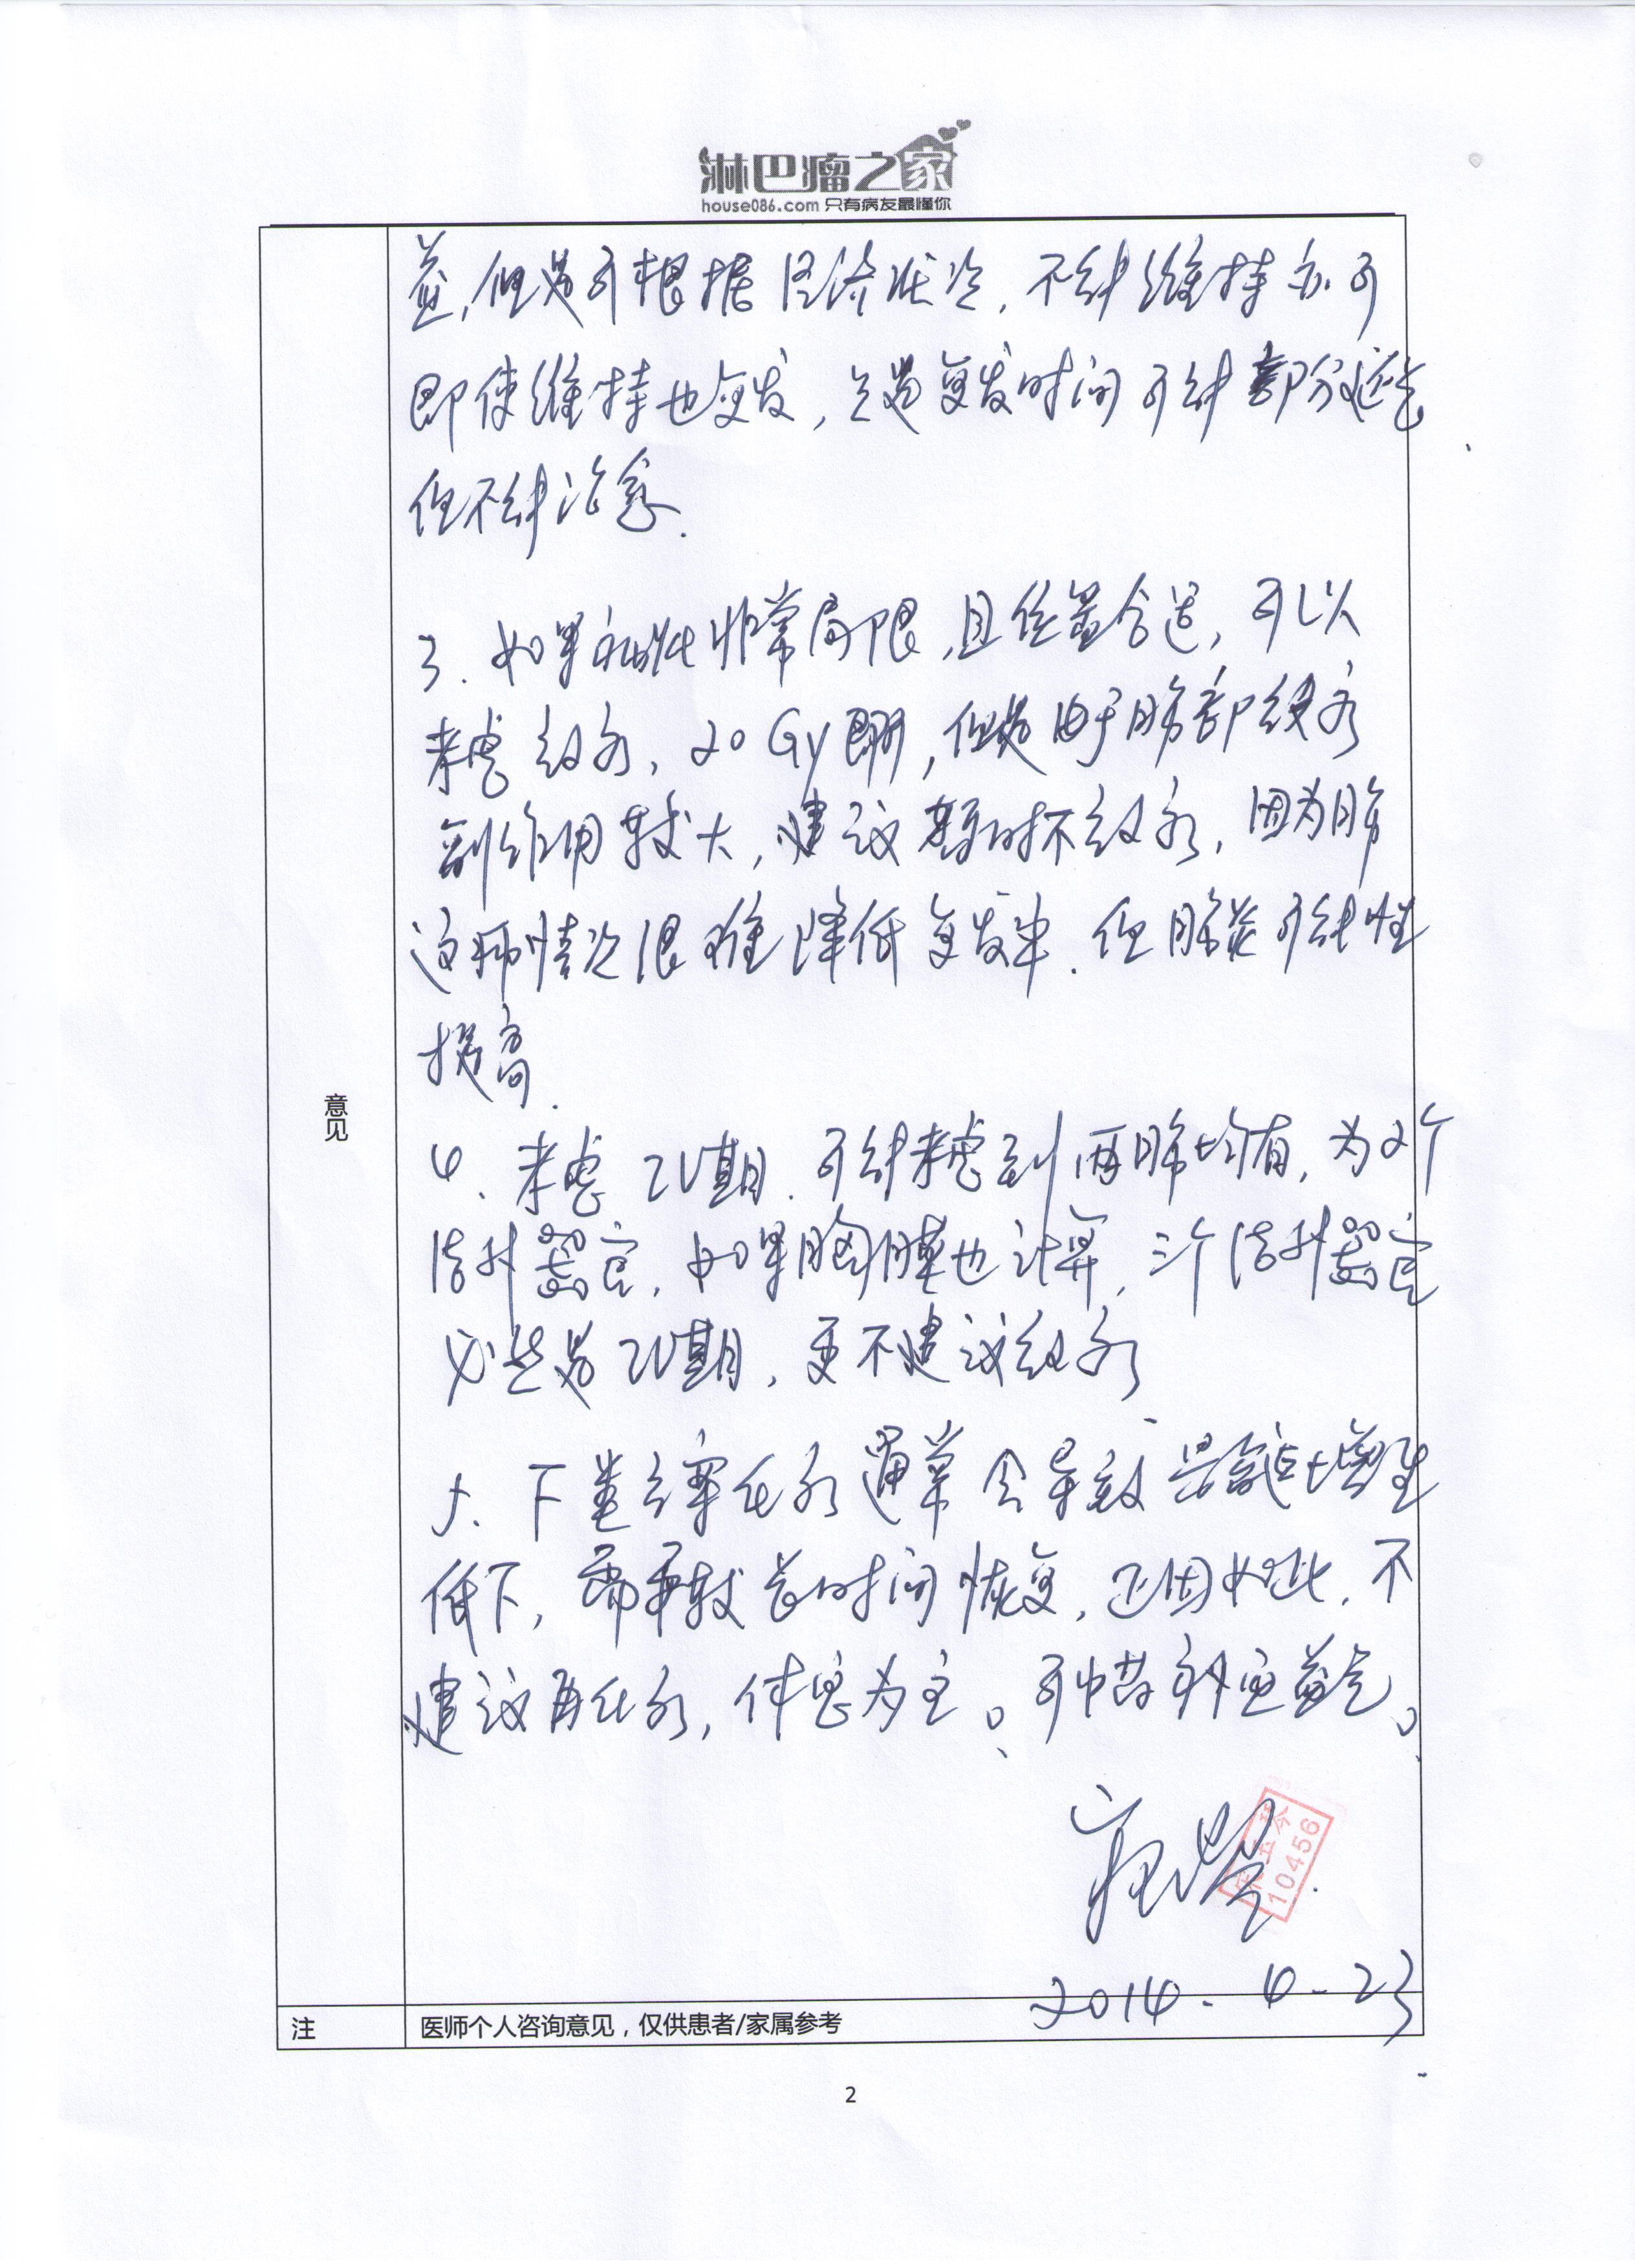 淋巴瘤之家
house086.com 只有病友最懂你
益,但是可根据经济状况,不能维持亦可
即使维持也复发,只是复发时间可能部分延长
但不能治愈.
3. 如果病灶非常局限,且位置合适,可以
考虑放疗,20Gy即可,但是由于肺部放疗
副作用较大,建议暂时不放疗,因为肺
这种情况很难降低复发率.但肺炎可能性
提高.
4. 考虑IV期.可能考虑到两肺均有,为2个
结外器官,如果胸膜也计算,三个结外器官
必然是IV期,更不建议放疗
5. 下 化疗通常会导致骨髓增生
低下,需要较长时间恢复,正因如此,不
建议再化疗,休息为主。可中药补血益气。
意见
10456
2014-4-23
注
医师个人咨询意见,仅供患者/家属参考
2